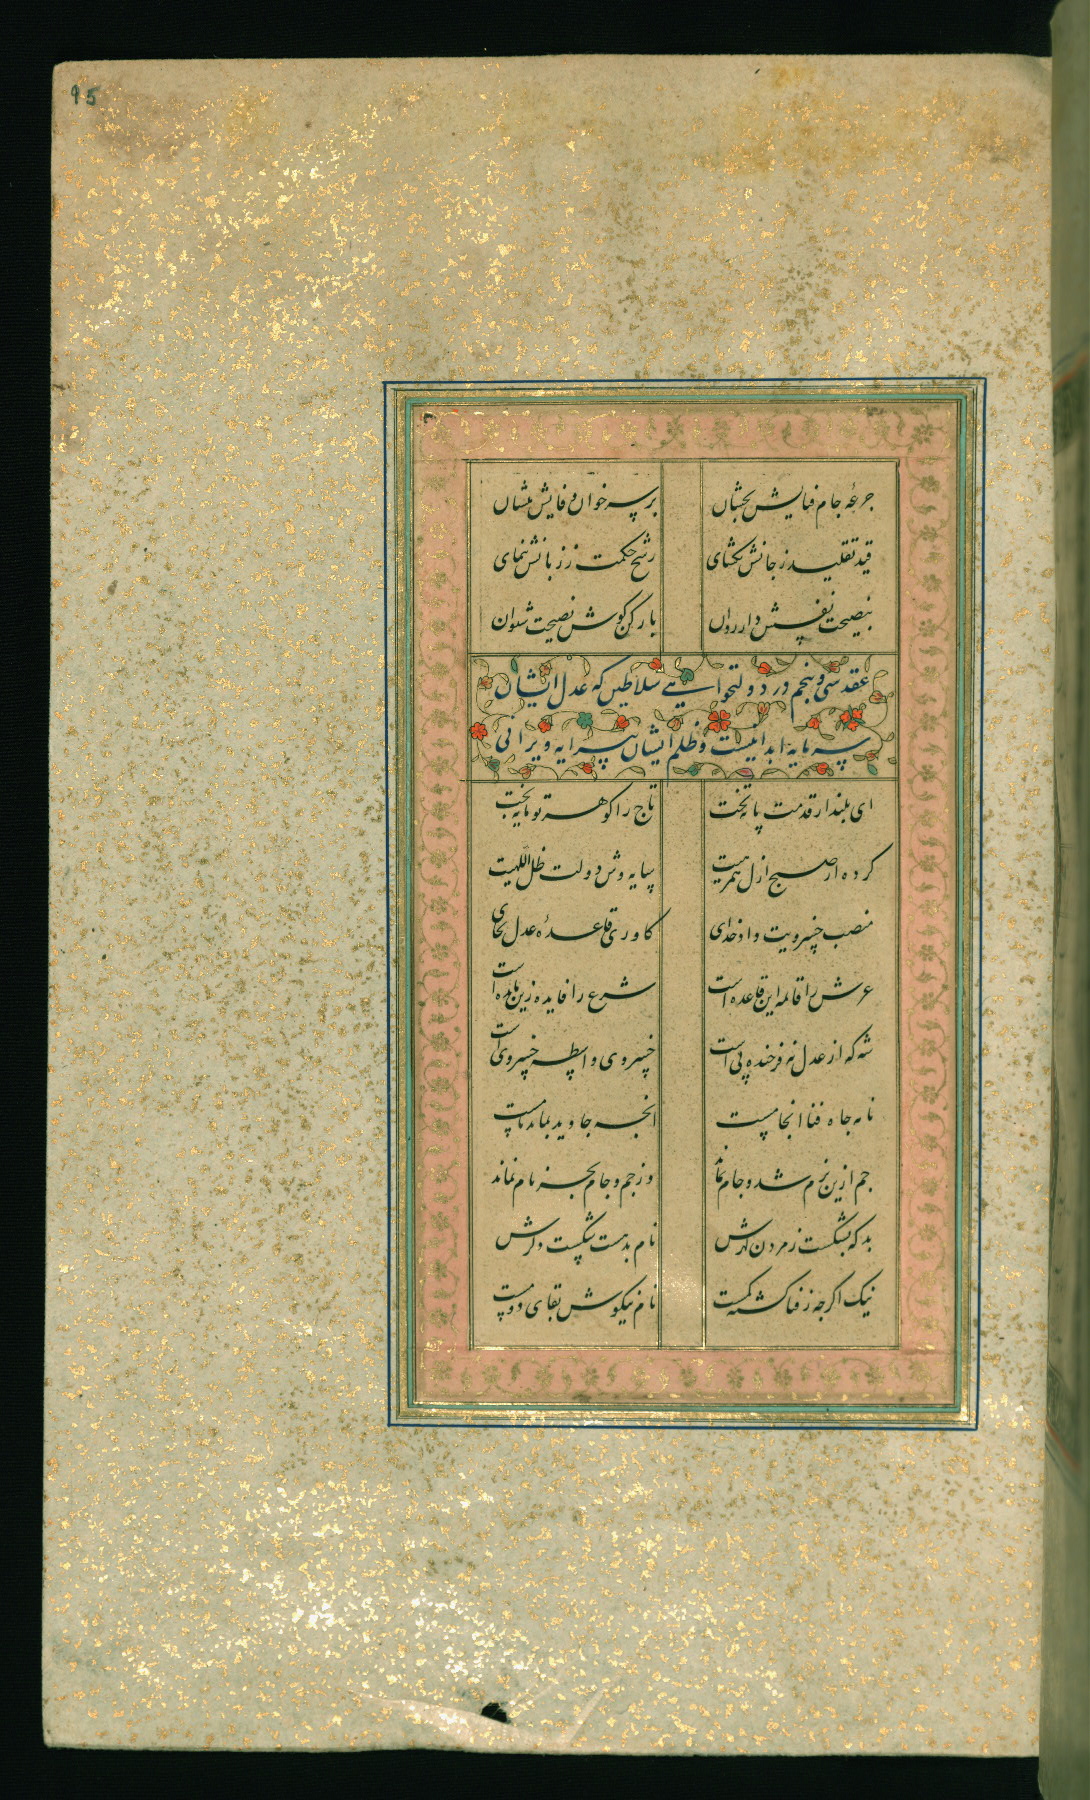 95
جرعهٔ جام فنایش بچشان
بر سر خوان وفایش بنشان
قید تقلید ز جانش بگشای
رشح حکمت ز زبانش بنمای
بنصیحت نفسش دار روان
بار کن گوش نصیحت شنوان
عقد سی و پنجم در دولتخواهی سلاطین که عدل ایشان
سرمایه ابدانیست و ظلم ایشان پیرایه ویرانی
ای بلند از قدمت پایه تخت
تاج را گوهر تو مایه بخت
کرده از صبح ازل همرهیت
سایه وش دولت ظل اللهیت
منصب خسرویت داد خدای
کاوری قاعدهٔ عدل بجای
عرش را قائمه این قاعده است
شرع را فایده زین مایده است
شه که از عدل نه فرخنده پی است
خسروی واسطه خسروی است
نامه جاه فنا انجامست
آنچه جاوید بماند نامست
جم ازین بزم شد و جام نماند
وز جم و جام بجز نام نماند
بد که بشکست ز مردن گهرش
نام بد هست شکست دگرش
نیک اگر چه ز فنا گشته گمست
نام نیکوش بقای دومست